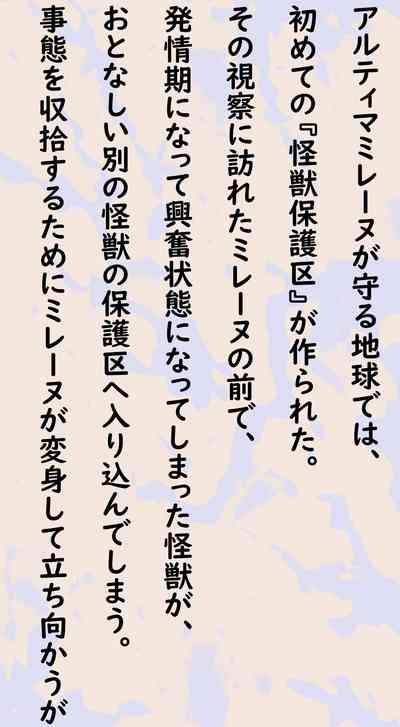 アルティマミレーヌが守る地球では、
初めての『怪獣保護区』が作られた。
その視察に訪れたミレーヌの前で、
発情期になって興奮状態になってしまった怪獣が、
おとなしい別の怪獣の保護区へ入り込んでしまう。
事態を収拾するためにミレーヌが変身して立ち向かうが